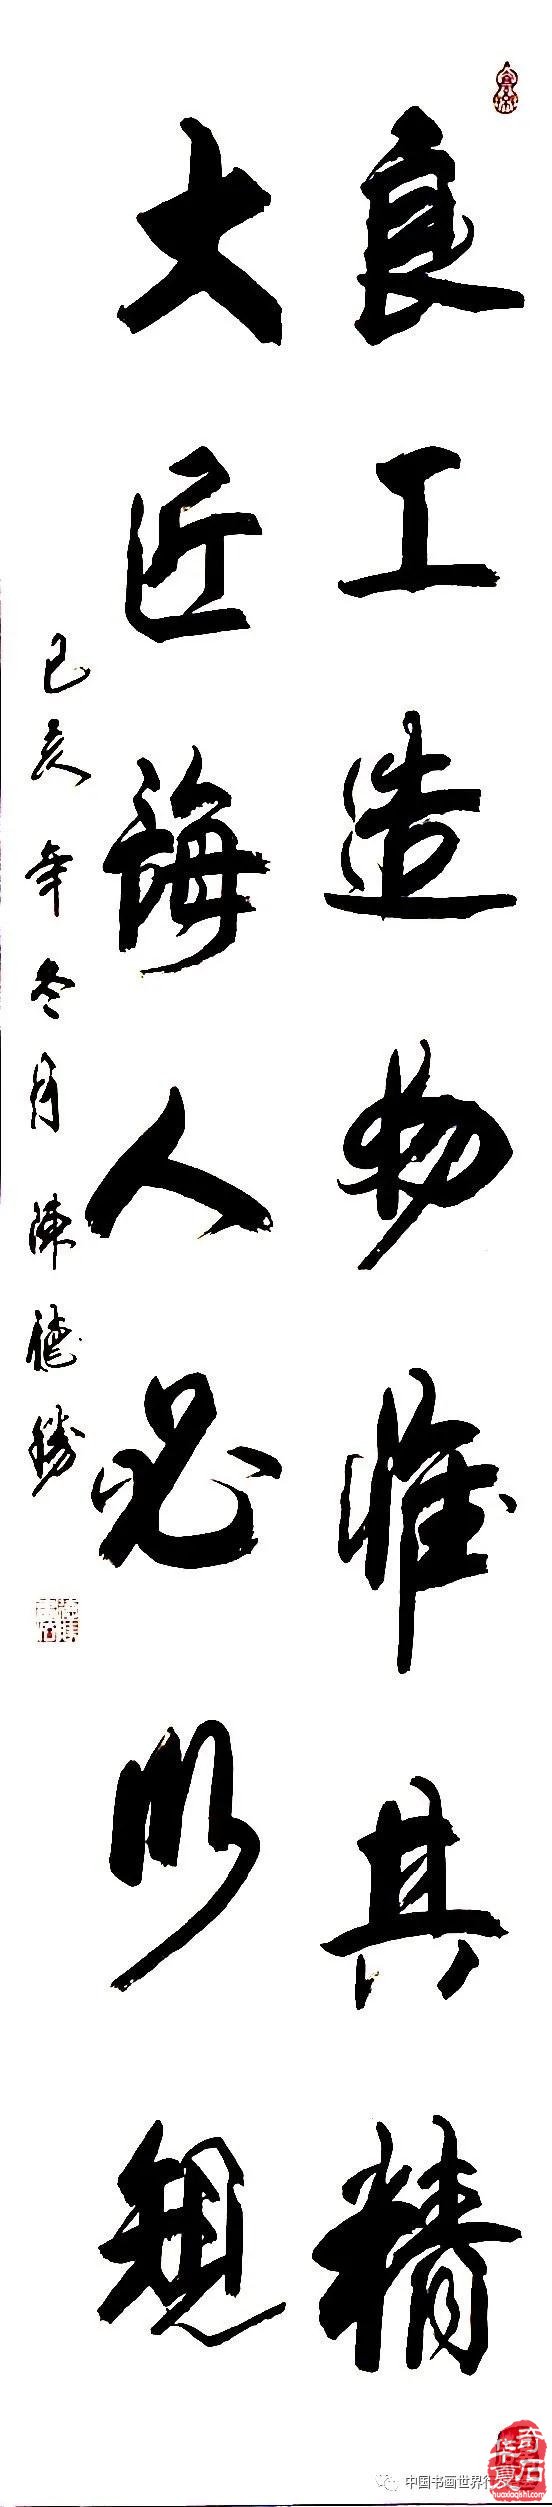 良工造物惟其精
大匠诲人必以规
己亥年冬月陳德勝
中国书画世界行
奇石
华夏
huaxiaqishi.com